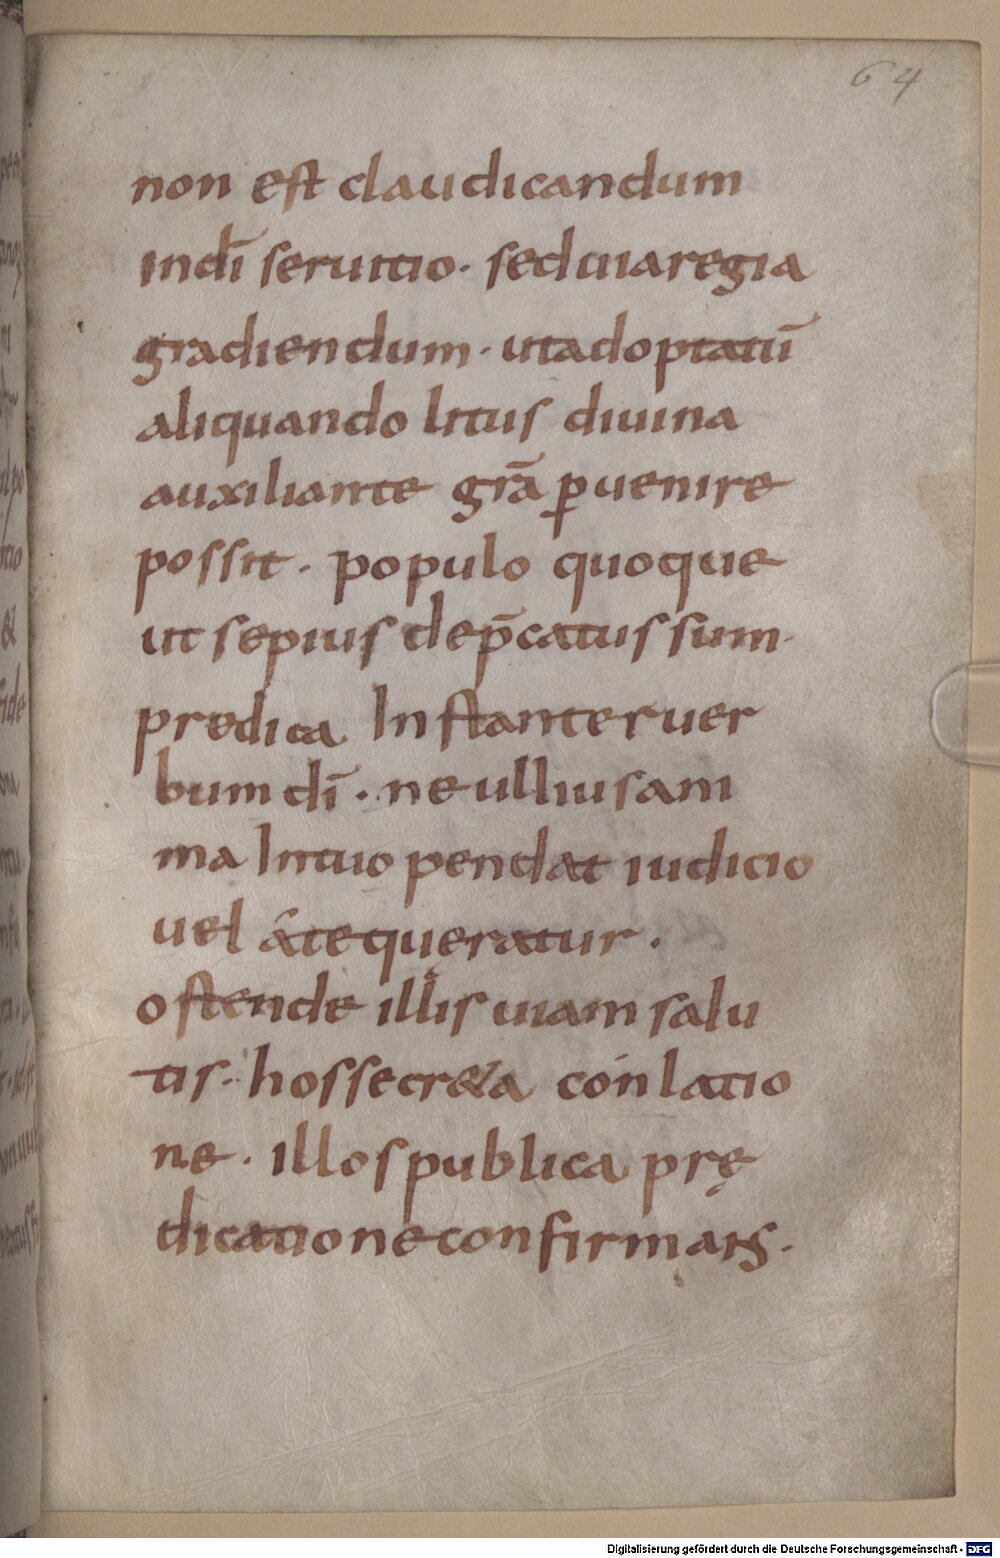 64
non est claudicandum
in dī seruitio · sed uia regia
gradiendum · ut ad optatū
aliquando litus diuina
auxiliante grā ꝑuenire
possit · populo quoque
ut sepius dep̄catus sum ·
predica Instanter uer
bum dī · ne ullius ani
ma In tuo pendat iudicio
uel a te queratur ·
ostende illis uiam salu
tis · hos secreta conlatio
ne · illos publica prę
dicatione confirmans ·
Digitalisierung gefördert durch die Deutsche Forschungsgemeinschaft - DFG